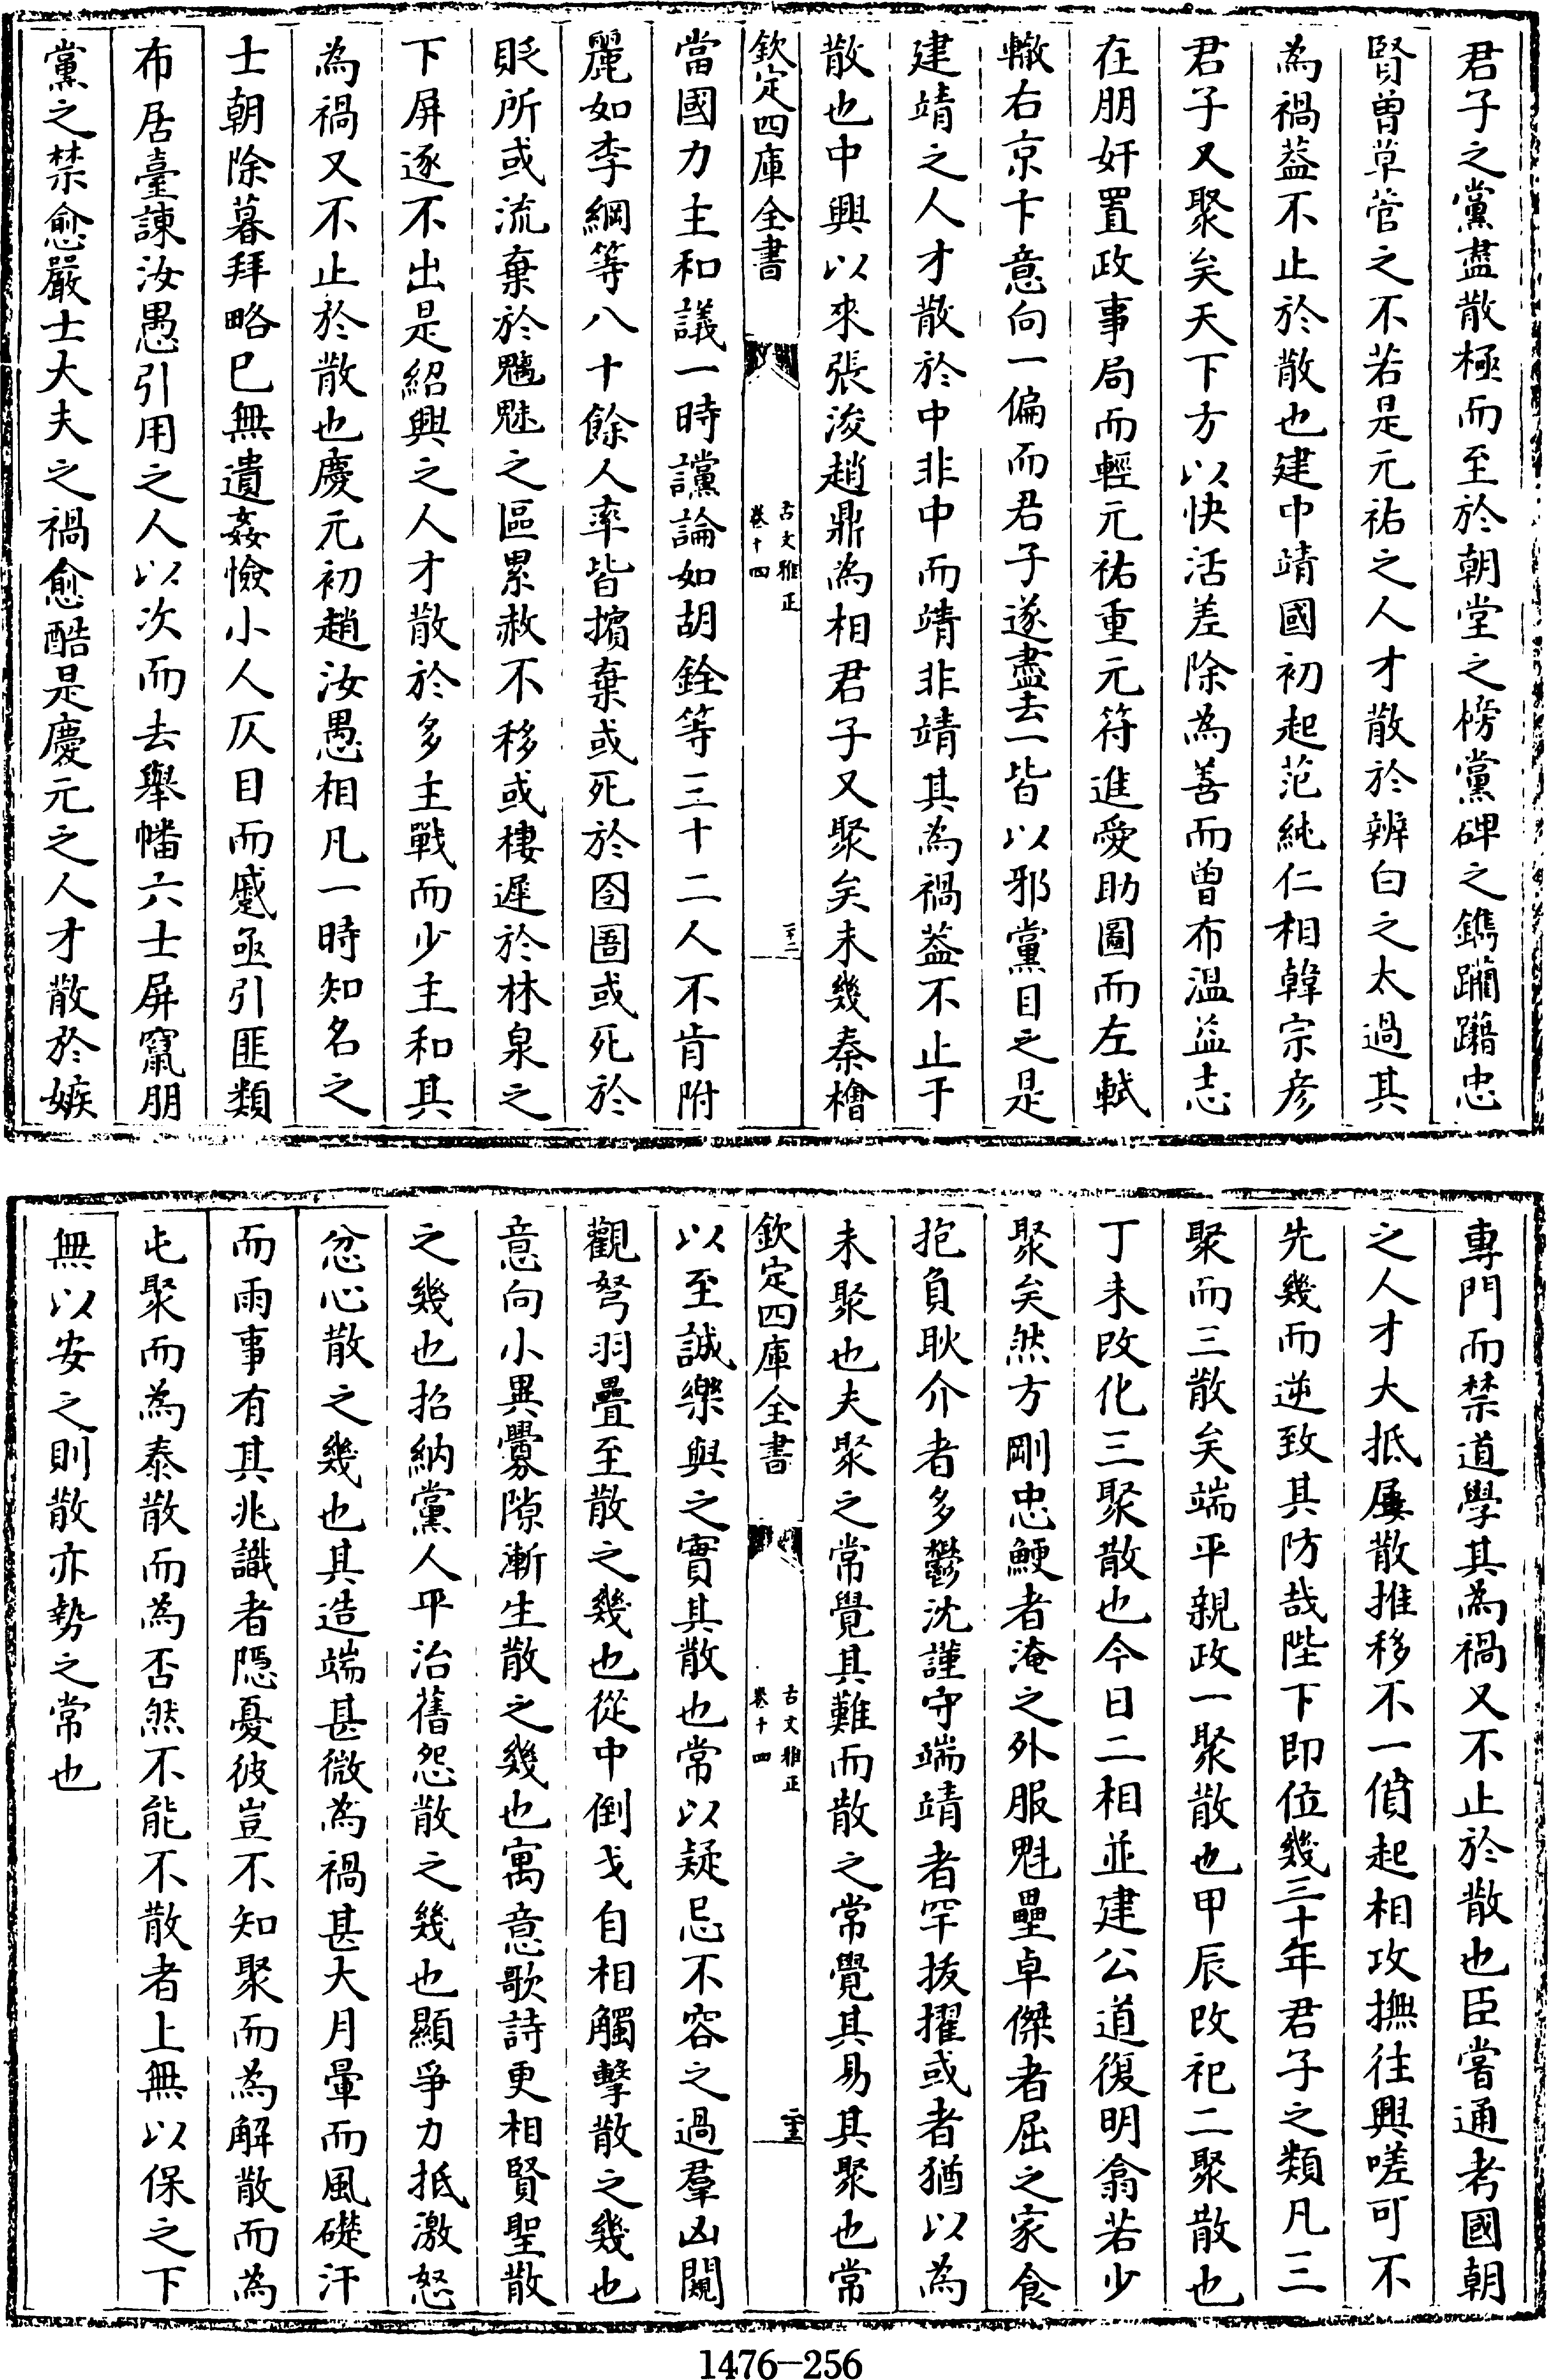 君子之黨盡散極而至於朝堂之榜黨碑之鐫躪躪忠
賢曽草菅之不若是元祐之人才散於辨白之太過其
為禍葢不止於散也建中靖國初起范純仁相韓宗彦
君子又聚矣天下方以快活差除為善而曽布溫益志
在朋奸置政事局而輕元祐重元符進愛助圖而左軾
轍右京卞意向一偏而君子遂盡去一皆以邪黨目之是
建靖之人才散於中非中而靖非靖其為禍葢不止于
散也中興以來張浚趙鼎為相君子又聚矣未幾秦檜
欽定四庫全書
古文雅正
卷十四
當國力主和議一時讜論如胡銓等三十二人不肯附
麗如李綱等八十餘人率皆擯棄或死於囹圄或死於
貶所或流棄於魑魅之區累赦不移或棲遲於林泉之
下屏逐不出是紹興之人才散於多主戰而少主和其
為禍又不止於散也慶元初趙汝愚相凡一時知名之
士朝除暮拜略巳無遺姦憸小人仄目而蹙亟引匪類
布居臺諫汝愚引用之人以次而去舉幡六士屏竄朋
黨之禁愈嚴士大夫之禍愈酷是慶元之人才散於嫉
專門而禁道學其為禍又不止於散也臣嘗通考國朝
之人才大抵屢散推移不一僨起相攻撫往興嗟可不
先幾而逆致其防哉陛下即位幾三十年君子之類凡三
聚而三散矣端平親政一聚散也甲辰改祀二聚散也
丁未改化三聚散也今日二相並建公道復明翕若少
聚矣然方剛忠鯁者淹之外服魁壘卓傑者屈之家食
抱負耿介者多鬱沈謹守端靖者罕拔擢或者猶以為
未聚也夫聚之常覺其難而散之常覺其易其聚也常
欽定四庫全書
古文雅正
卷十四
以至誠樂與之實其散也常以疑忌不容之過羣凶闖
觀弩羽疊至散之幾也從中倒戈自相觸擊散之幾也
意向小異釁隙漸生散之幾也寓意歌詩更相賢聖散
之幾也招納黨人平治舊怨散之幾也顯爭力抵激怒
忿心散之幾也其造端甚微為禍甚大月暈而風礎汗
而雨事有其兆識者隠憂彼豈不知聚而為解散而為
屯聚而為泰散而為否然不能不散者上無以保之下
無以安之則散亦勢之常也
1476-256